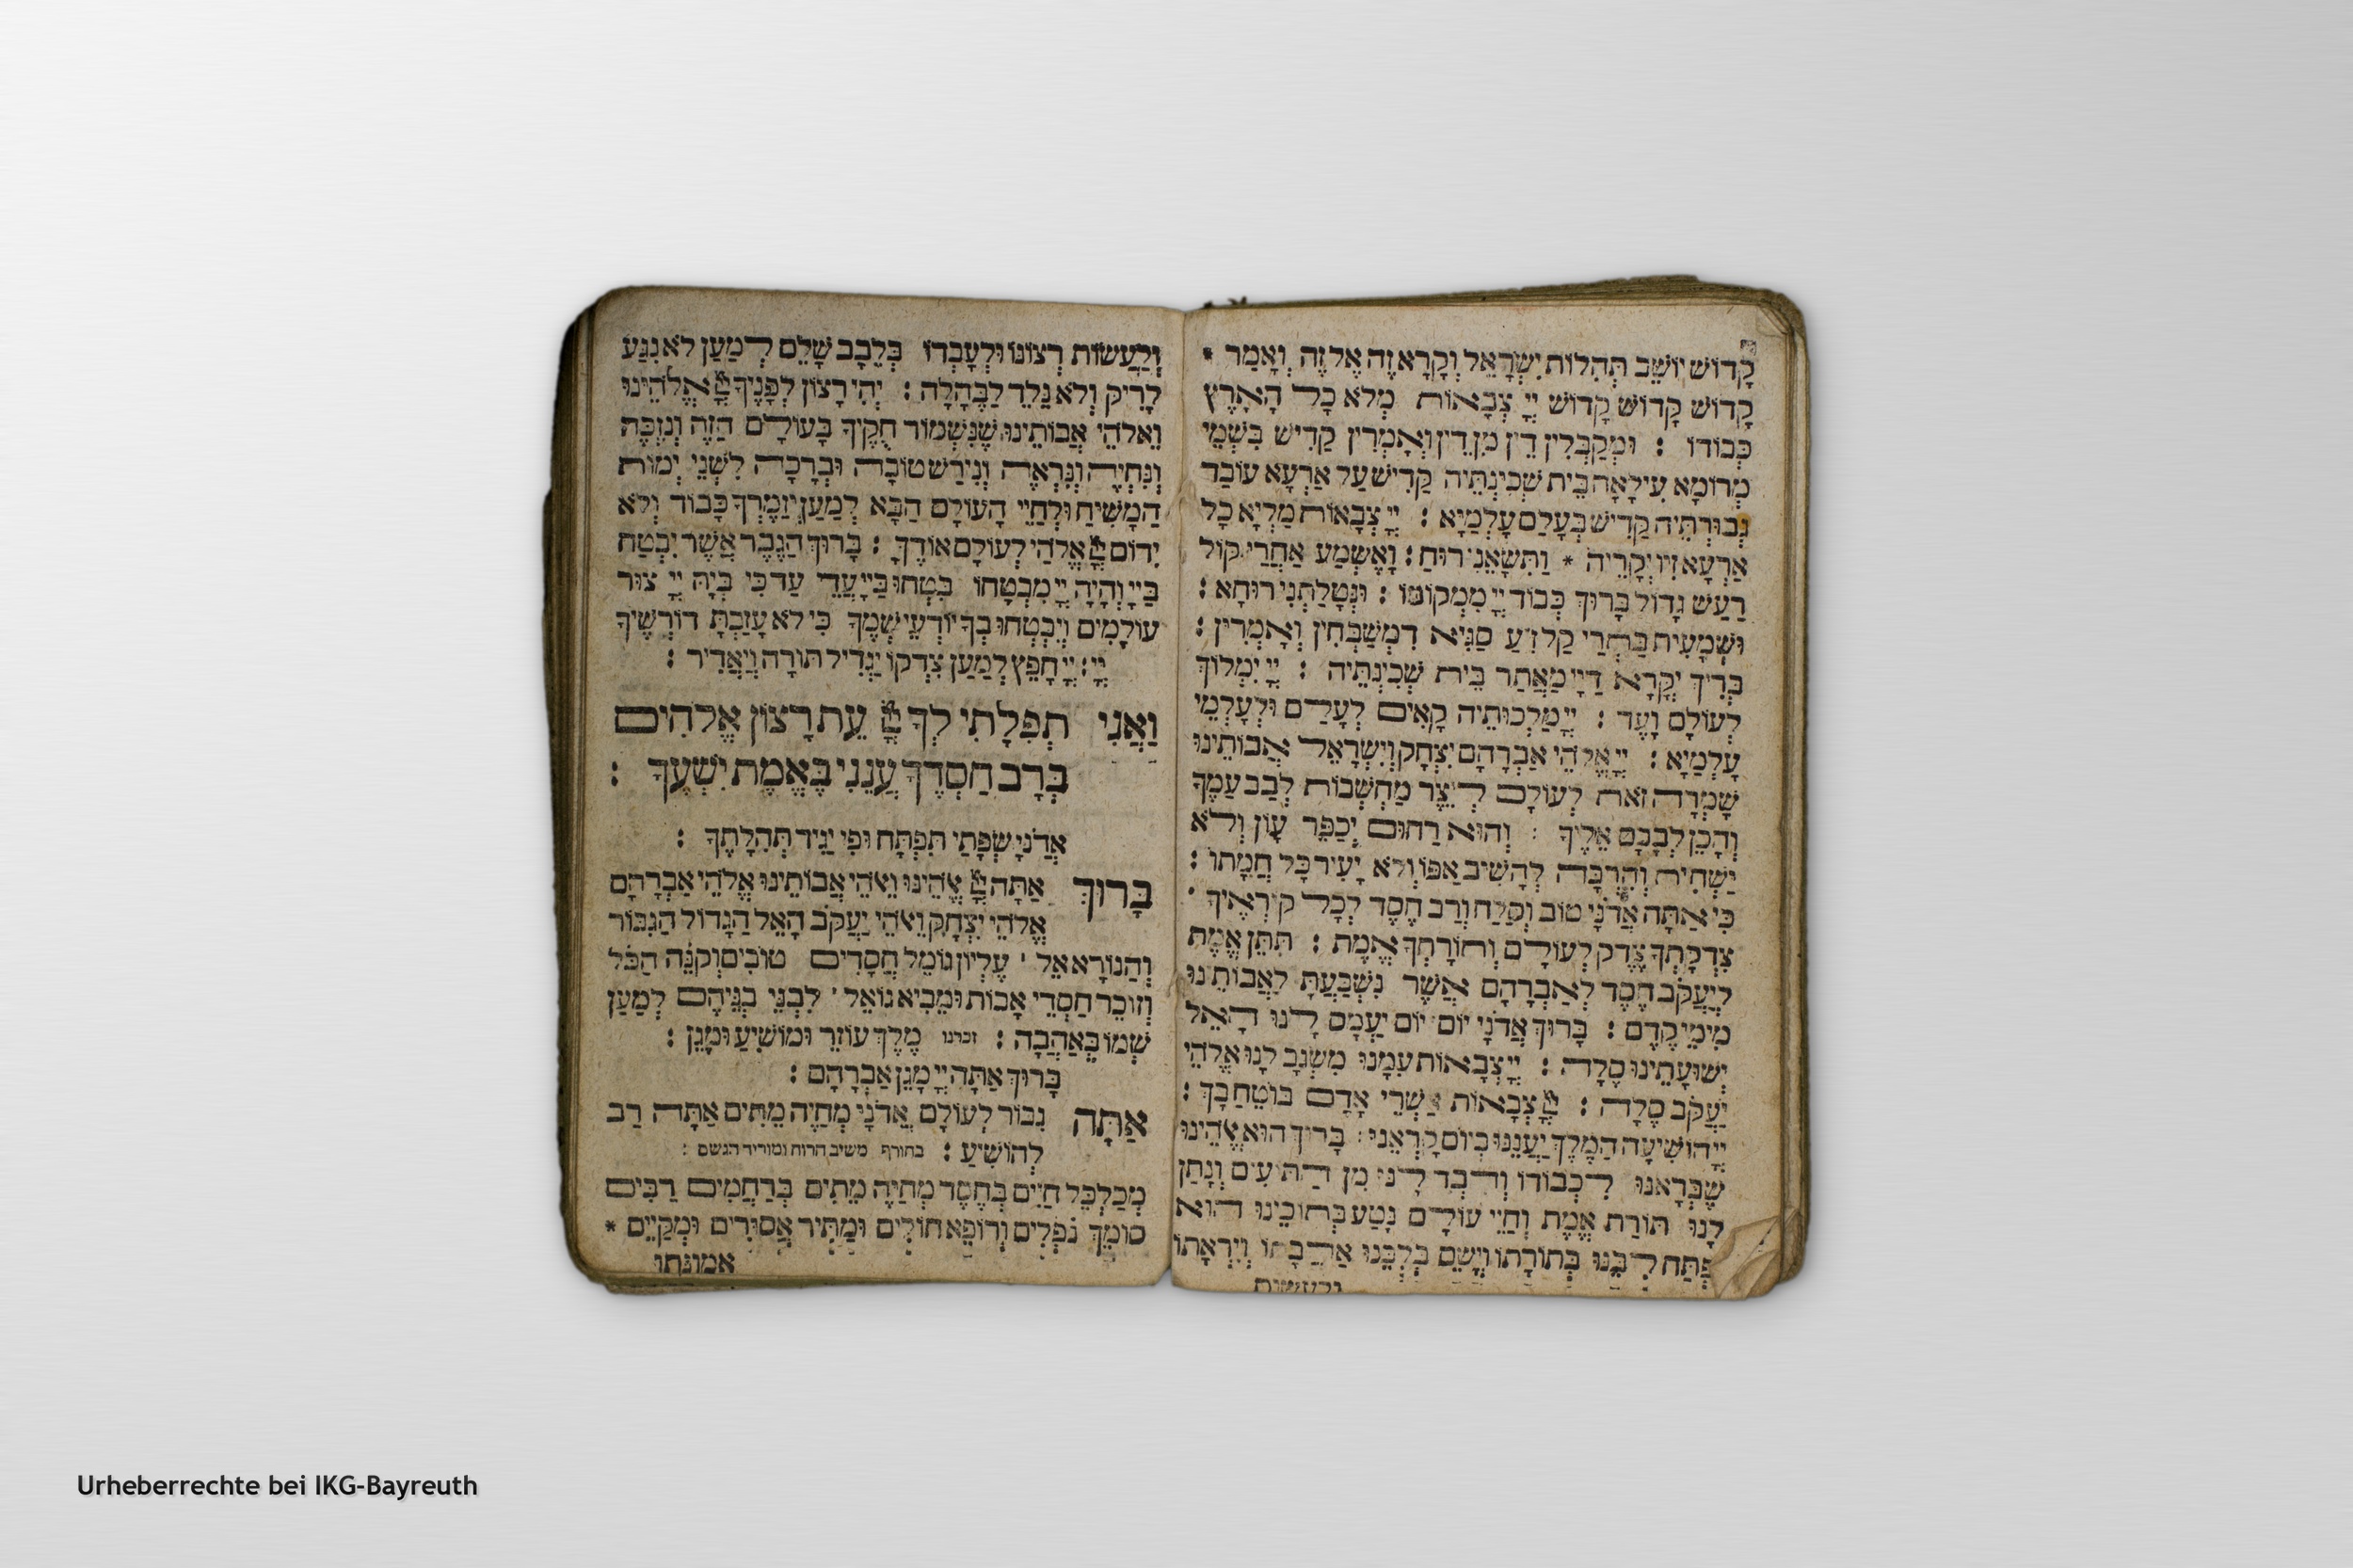 קָדוֹשׁ יוֹשֵׁב תְּהִלּוֹת יִשְׂרָאֵל וְקָרָא זֶה אֶל זֶה וְאָמַר *
קָדוֹשׁ קָדוֹשׁ קָדוֹשׁ יְיָ צְבָאוֹת מְלֹא כָל הָאָרֶץ
כְּבוֹדוֹ : וּמְקַבְּלִין דֵּין מִן דֵּין וְאָמְרִין קַדִּישׁ בִּשְׁמֵי
מְרוֹמָא עִילָאָה בֵּית שְׁכִינְתֵּיהּ קַדִּישׁ עַל אַרְעָא עוֹבַד
גְבוּרְתֵּיהּ קַדִּישׁ בְּעָלַם עָלְמַיָּא : יְיָ צְבָאוֹת מַלְיָא כָל
אַרְעָא זִיו יְקָרֵיהּ * וַתִּשָּׂאֵנִי רוּחַ : וָאֶשְׁמַע אַחֲרַי קוֹל
רַעַשׁ גָדוֹל בָּרוּךְ כְּבוֹד יְיָ מִמְּקוֹמוֹ : וּנְטָלַתְנִי רוּחָא :
וּשְׁמָעִית בַּתְרַי קַל זִיעַ סַגִּיא דִמְשַׁבְּחִין וְאָמְרִין :
בְּרִיךְ יְקָרָא דַיְיָ מֵאֲתַר בֵּית שְׁכִינְתֵּיהּ : יְיָ יִמְלוֹךְ
לְעוֹלָם וָעֶד : יְיָ מַלְכוּתֵיהּ קָאֵים לְעָלַם וּלְעָלְמֵי
עָלְמַיָּא : יְיָ אֱלֹהֵי אַבְרָהָם יִצְחָק וְיִשְׂרָאֵל אֲבוֹתֵינוּ
שָׁמְרָה זֹאת לְעוֹלָם לְיֵצֶר מַחְשְׁבוֹת לְבַב עַמֶּךָ
וְהָכֵן לְבָבָם אֵלֶיךָ : וְהוּא רַחוּם יְכַפֵּר עָוֹן וְלֹא
יַשְׁחִית וְהִרְבָּה לְהָשִׁיב אַפּוֹ וְלֹא יָעִיר כָּל חֲמָתוֹ :
כִּי אַתָּה אֲדֹנָי טוֹב וְסַלָּח וְרַב חֶסֶד לְכָל קוֹרְאֶיךָ '
צִדְקָתְךָ צֶדֶק לְעוֹלָם וְתוֹרָתְךָ אֱמֶת : תִּתֵּן אֱמֶת
לְיַעֲקֹב חֶסֶד לְאַבְרָהָם אֲשֶׁר נִשְׁבַּעְתָּ לַאֲבוֹתֵינוּ
מִימֵי קֶדֶם : בָּרוּךְ אֲדֹנָי יוֹם יוֹם יַעֲמָס לָנוּ הָאֵל
יְשׁוּעָתֵינוּ סֶלָה : יְיָ צְבָאוֹת עִמָּנוּ מִשְׂגָּב לָנוּ אֱלֹהֵי
יַעֲקֹב סֶלָה : יְיָ צְבָאוֹת אַשְׁרֵי אָדָם בּוֹטֵחַ בָּךְ :
יְיָ הוֹשִׁיעָה הַמֶּלֶךְ יַעֲנֵנוּ בְיוֹם קָרְאֵנוּ : בָּרוּךְ הוּא אֱלֹהֵינוּ
שֶׁבְּרָאָנוּ לִכְבוֹדוֹ וְהִבְדִּילָנוּ מִן הַתּוֹעִים וְנָתַן
לָנוּ תּוֹרַת אֱמֶת וְחַיֵּי עוֹלָם נָטַע בְּתוֹכֵינוּ הוּא
יִפְתַּח לִבֵּנוּ בְּתוֹרָתוֹ וְיָשֵׂם בְּלִבֵּנוּ אַהֲבָתוֹ וְיִרְאָתוֹ
ולעשות
וְלַעֲשׂוֹת רְצוֹנוֹ וּלְעָבְדוֹ בְּלֵבָב שָׁלֵם לְמַעַן לֹא נִיגַע
לָרִיק וְלֹא נֵלֵד לַבֶּהָלָה : יְהִי רָצוֹן לְפָנֶיךָ יְיָ אֱלֹהֵינוּ
וֵאלֹהֵי אֲבוֹתֵינוּ שֶׁנִּשְׁמוֹר חֻקֶּיךָ בָּעוֹלָם הַזֶּה וְנִזְכֶּה
וְנִחְיֶה וְנִרְאֶה וְנִירַשׁ טוֹבָה וּבְרָכָה לִשְׁנֵי יְמוֹת
הַמָּשִׁיחַ וּלְחַיֵּי הָעוֹלָם הַבָּא לְמַעַן יְזַמֶּרְךָ כָּבוֹד וְלֹא
יִדּוֹם יְיָ אֱלֹהַי לְעוֹלָם אוֹדֶךָּ : בָּרוּךְ הַגֶּבֶר אֲשֶׁר יִבְטַח
בַּיְיָ וְהָיָה יְיָ מִבְטָחוֹ בִּטְחוּ בַיְיָ עֲדֵי עַד כִּי בְּיָהּ יְיָ צוּר
עוֹלָמִים וְיִבְטְחוּ בְךָ יוֹדְעֵי שְׁמֶךָ כִּי לֹא עָזַבְתָּ דּוֹרְשֶׁיךָ
יְיָ : יְיָ חָפֵץ לְמַעַן צִדְקוֹ יַגְדִּיל תּוֹרָה וְיַאֲדִיר :
וַאֲנִי תְפִלָּתִי לְךָ יְיָ עֵת רָצוֹן אֱלֹהִים
בְּרָב חַסְדֶּךָ עֲנֵנִי בֶּאֱמֶת יִשְׁעֶךָ :
אֲדֹנָי שְׂפָתַי תִּפְתָּח וּפִי יַגִּיד תְּהִלָּתֶךָ :
בָּרוּךְ אַתָּה יְיָ אֱלֹהֵינוּ וֵאלֹהֵי אֲבוֹתֵינוּ אֱלֹהֵי אַבְרָהָם
אֱלֹהֵי יִצְחָק וֵאלֹהֵי יַעֲקֹב הָאֵל הַגָּדוֹל הַגִּבּוֹר
וְהַנּוֹרָא אֵל ' עֶלְיוֹן גּוֹמֵל חֲסָדִים טוֹבִים וְקֹנֵה הַכֹּל
וְזוֹכֵר חַסְדֵי אָבוֹת וּמֵבִיא גוֹאֵל ' לִבְנֵי בְנֵיהֶם לְמַעַן
שְׁמוֹ בְּאַהֲבָה : זכרנו מֶלֶךְ עוֹזֵר וּמוֹשִׁיעַ וּמָגֵן :
בָּרוּךְ אַתָּה יְיָ מָגֵן אַבְרָהָם :
אַתָּה גִבּוֹר לְעוֹלָם אֲדֹנָי מְחַיֶּה מֵתִים אַתָּה רַב
לְהוֹשִׁיעַ : בחורף משיב הרוח ומוריד הגשם :
מְכַלְכֵּל חַיִּים בְּחֶסֶד מְחַיֶּה מֵתִים בְּרַחֲמִים רַבִּים
סוֹמֵךְ נֹפְלִים וְרוֹפֵא חוֹלִים וּמַתִּיר אֲסוּרִים וּמְקַיֵּם *
אמונתו
Urheberrechte bei IKG-Bayreuth